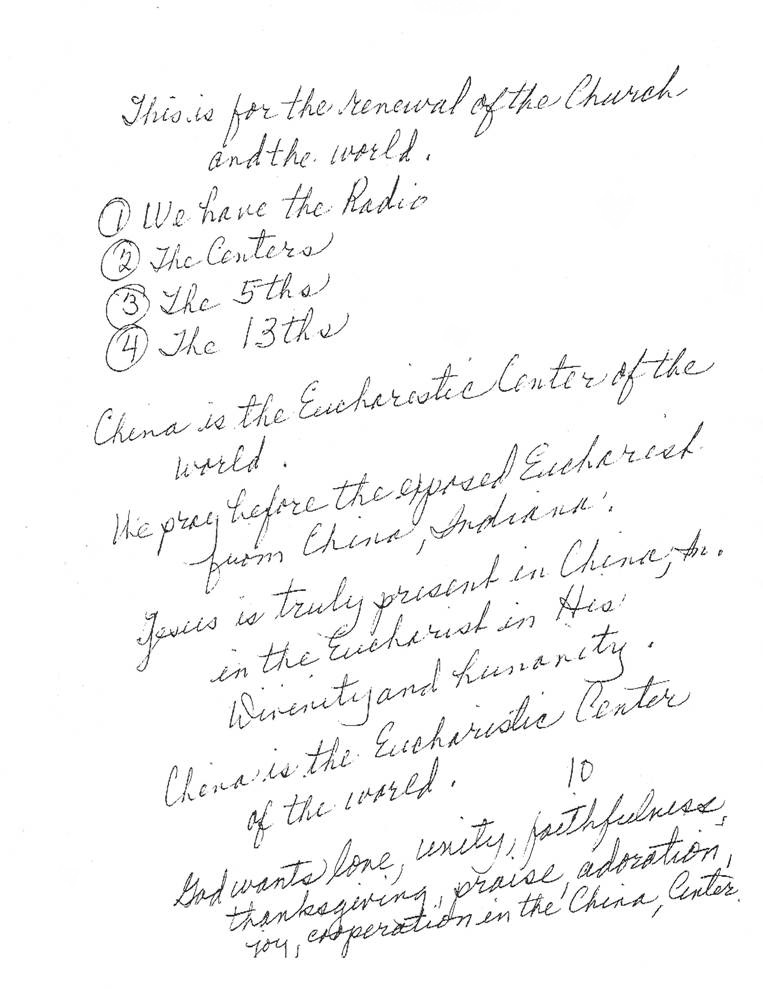 This is for the renewal of the Church
and the world.
① We have the Radio
② The Centers
③ The 5ths
④ The 13ths
China is the Eucharistic Center of the
world.
We pray before the exposed Eucharist
from China, Indiana.
Jesus is truly present in China, In.
in the Eucharist in His
Divinity and humanity.
China is the Eucharistic Center
of the world.
10
God wants love, unity, faithfulness,
thanksgiving, praise, adoration,
joy, cooperation in the China, Center.